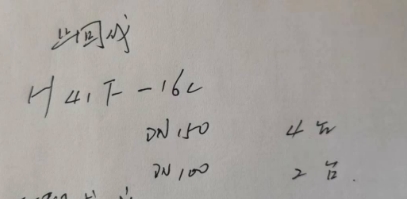 止回阀
H41F-16C
DN150 4台
DN100 2台.